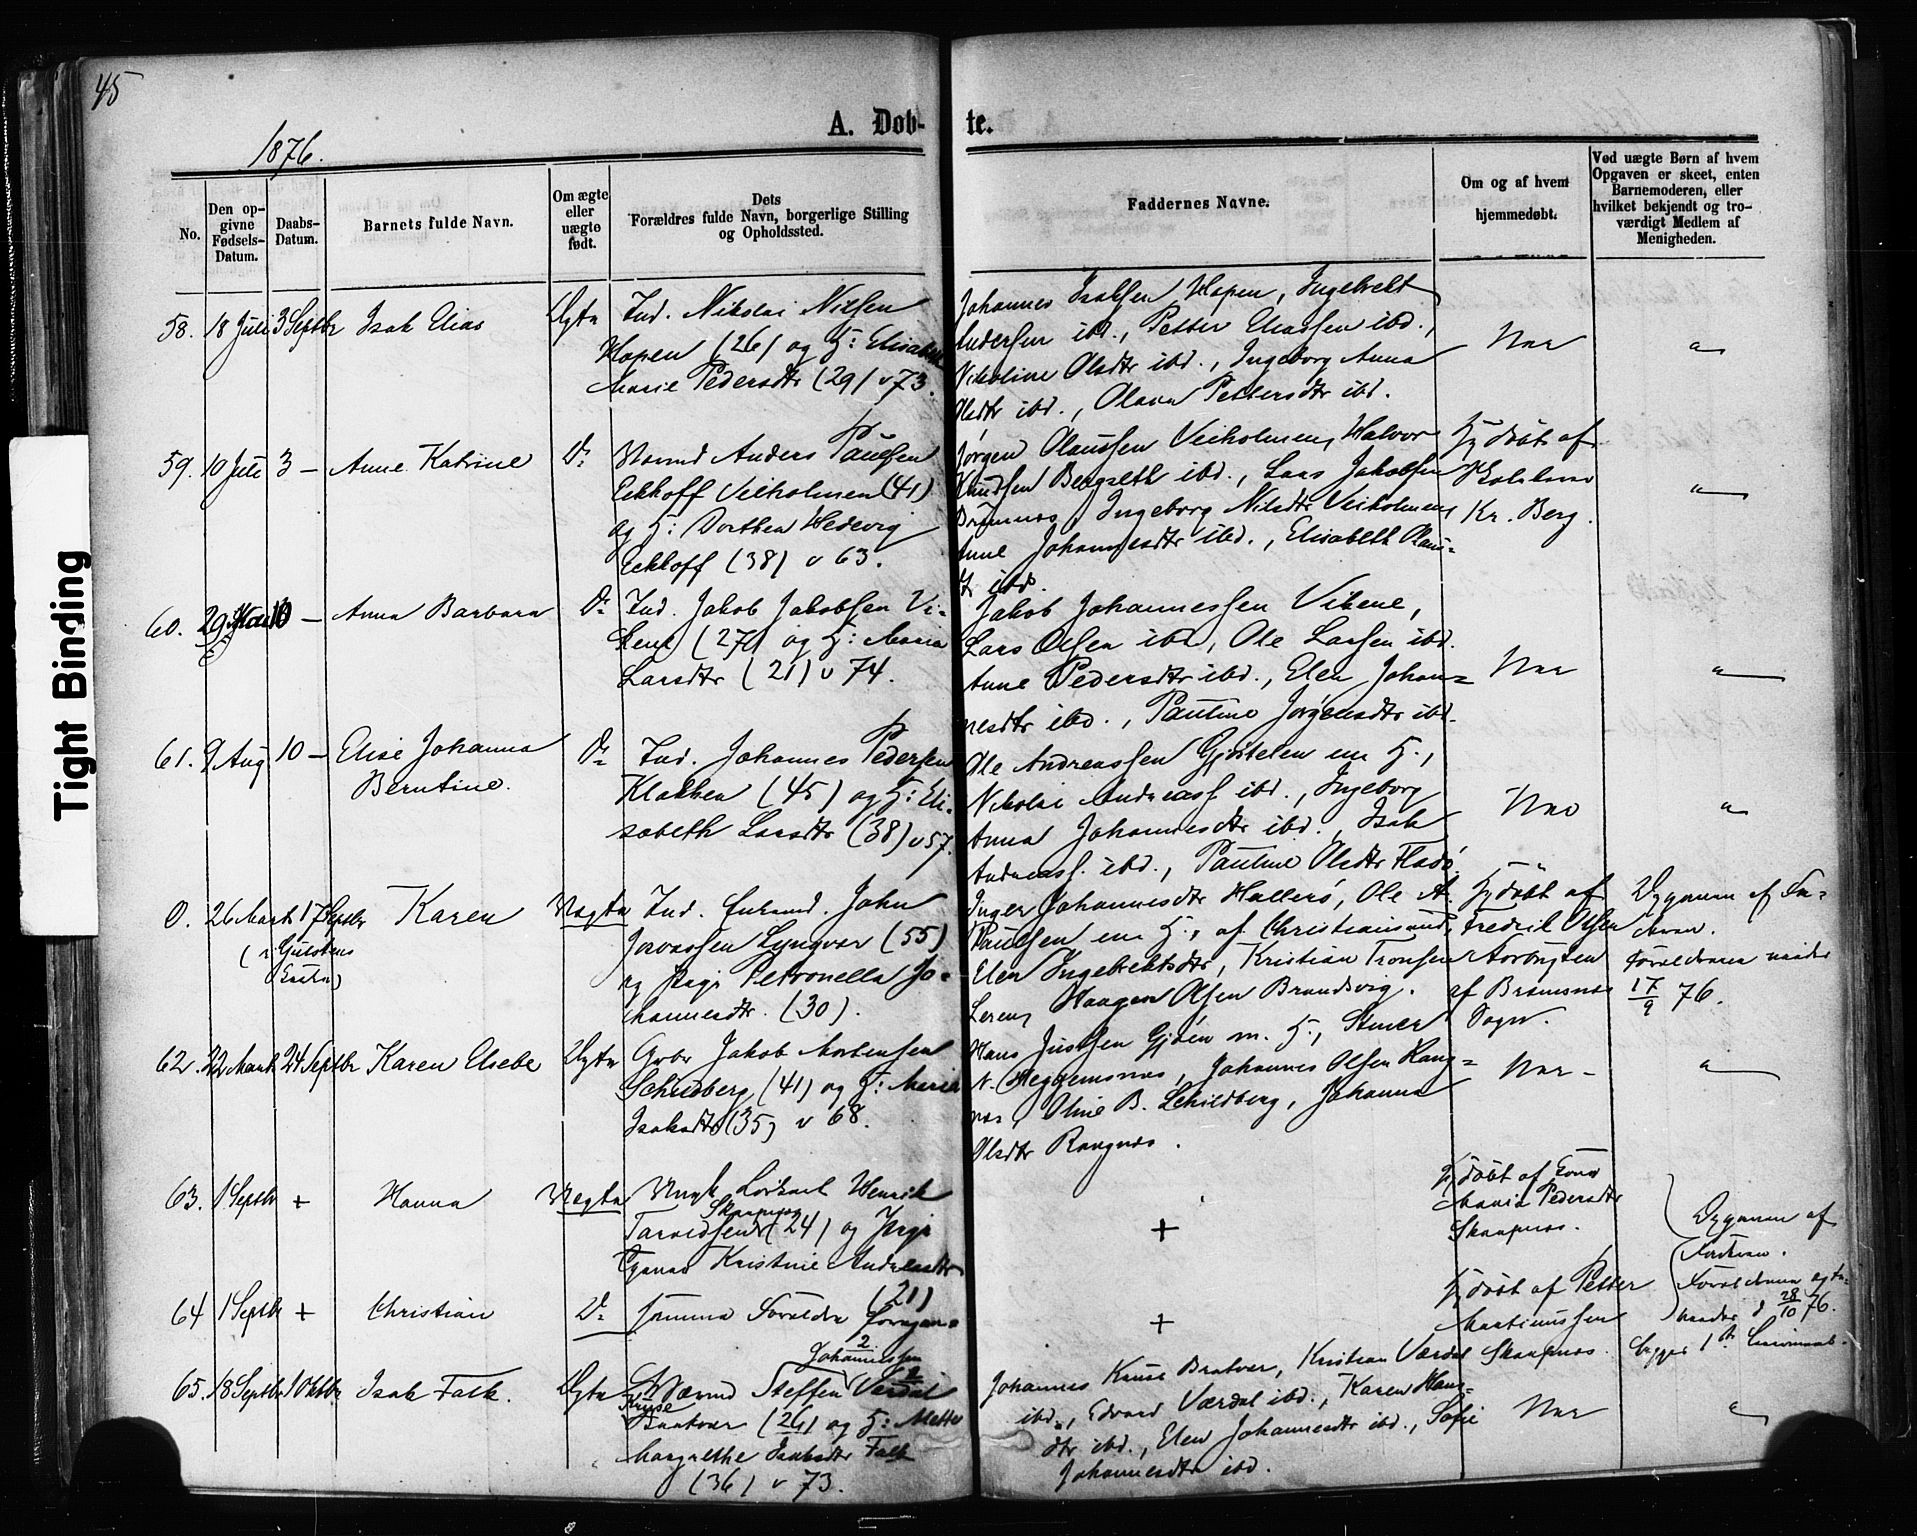 45
1876.
A. Døb-
te.
No.
Den op-
givne
Fødsels-
Datum.
Daabs-
Datum.
Barnets fulde Navn.
Om ægte
eller
uægte
født.
Dets
Forældres fulde Navn, borgerlige Stilling
og Opholdssted.
Faddernes Navne.
Om og af hvem
hjemmedøbt.
Ved uægte Børn af hvem
Opgaven er skeet, enten
Barnemoderen, eller
hvilket bekjendt og tro-
værdigt Medlem af
Menigheden.
58. 18 Juli 3 Septbr Isak Elias Ægte
Ind. Nikolai Nilsen
Hopen (26) og H: Elisabeth
Marie Pedersdtr (29) v 73.
Johannes Isaksen Hopen, Ingebrekt
Andersen ibd., Petter Eliassen ibd.,
Nikoline Olsdtr ibd., Ingeborg Anna
Olsdtr ibd., Olava Pettersdtr ibd.
Nei
"
59. 10 Juli 3 — Anne Katrine Do
Anders Paulsen
Eckhoff Veiholmen (41)
og H: Dorthea Hedevig
Eckhoff (38) v 63.
Jørgen Olaussen Veiholmen, Halvor
Knudsen Bergseth ibd., Lars Jakobsen
Ingeborg Nilsdtr Veiholmen,
Anne Johannesdtr ibd., Elisabeth Olaus-
ibd.
Hj døbt af
Kr. Berg.
"
60. 29 10 — Anna Barbara Do
Ind. Jakob Jakobsen Vi-
kene (27) og H: Maria
Larsdtr (21) v 74.
Jakob Johannessen Vikene,
Lars Olsen ibd, Ole Larsen ibd.
Anne Pedersdtr ibd., Elen Johan-
nesdtr ibd., Pauline Jørgensdtr ibd.
Nei
"
61. 9 Aug 10 — Elise Johanna
Berntine.
Do
Ind. Johannes Pedersen
Klakken (45) og H: Eli-
sabeth Larsdtr (38) v 57.
Ole Andreassen Gjøstelen m H.,
Nikolai Andreass. ibd., Ingeborg
Anna Johannesdtr ibd., Isak
Andreass. ibd., Pauline Olsdtr Fladø.
Nei
"
0. 26 Marts 17 Septbr Karen Uægte
Ind. John
Lyngvær (55)
og Pige Petronella Jo-
hannesdtr. (30).
Inger Johannesdtr Hallerø, Ole A.
Paulsen m H., af Christiansund,
Elen Ingebrektsdtr, Kristian Tronsen
Haagen Olsen Brandsvig.
Hj døbt af
Fredrik Olsen
af Bremsnes
Sogn.
Opgaven af Fa-
deren.
Forældrene
17/9 76.
62. 22 Marts 24 Septbr Karen Elsebe Ægte
Gbr Jakob Mortensen
Schildberg (41) og H: Marie
Isaksdtr (35) v 68.
Hans Justsen Gjøen m. H.,
N. Heggemsnes, Johannes Olsen Rang-
nes, Oline B. Schildberg, Johanna
Olsdtr Rangnes.
Nei
"
63. 1 Septbr + Hanna Uægte
Ungk. Henrik
Skarpnes
(24) og Pige
Kristine Andreasdtr
(21)
+
Hj døbt af Kona
Maria Pedersdtr
Skarpnes.
Opgaven af
Faderen.
Forældrene
28/10 76.
64 1 Septbr + Christian Do
Samme Forældre
+
Hj døbt af Petter
Martinussen
Skarpnes.
65. 18 Septbr 1 Oktbr Isak Falk. Ægte
Johannessen
Steffen Værdal
Kruse
Bratvær (26) og H: Mette
Margrethe Isaksdtr Falk
(36) v 73.
Johannes Kruse Bratvær, Kristian Værdal
ibd., Edvard Værdal ibd., Karen Hans-
dtr ibd., Elen Johannesdtr ibd., Sofie
Johannesdtr ibd.
Nei
"
Tight Binding